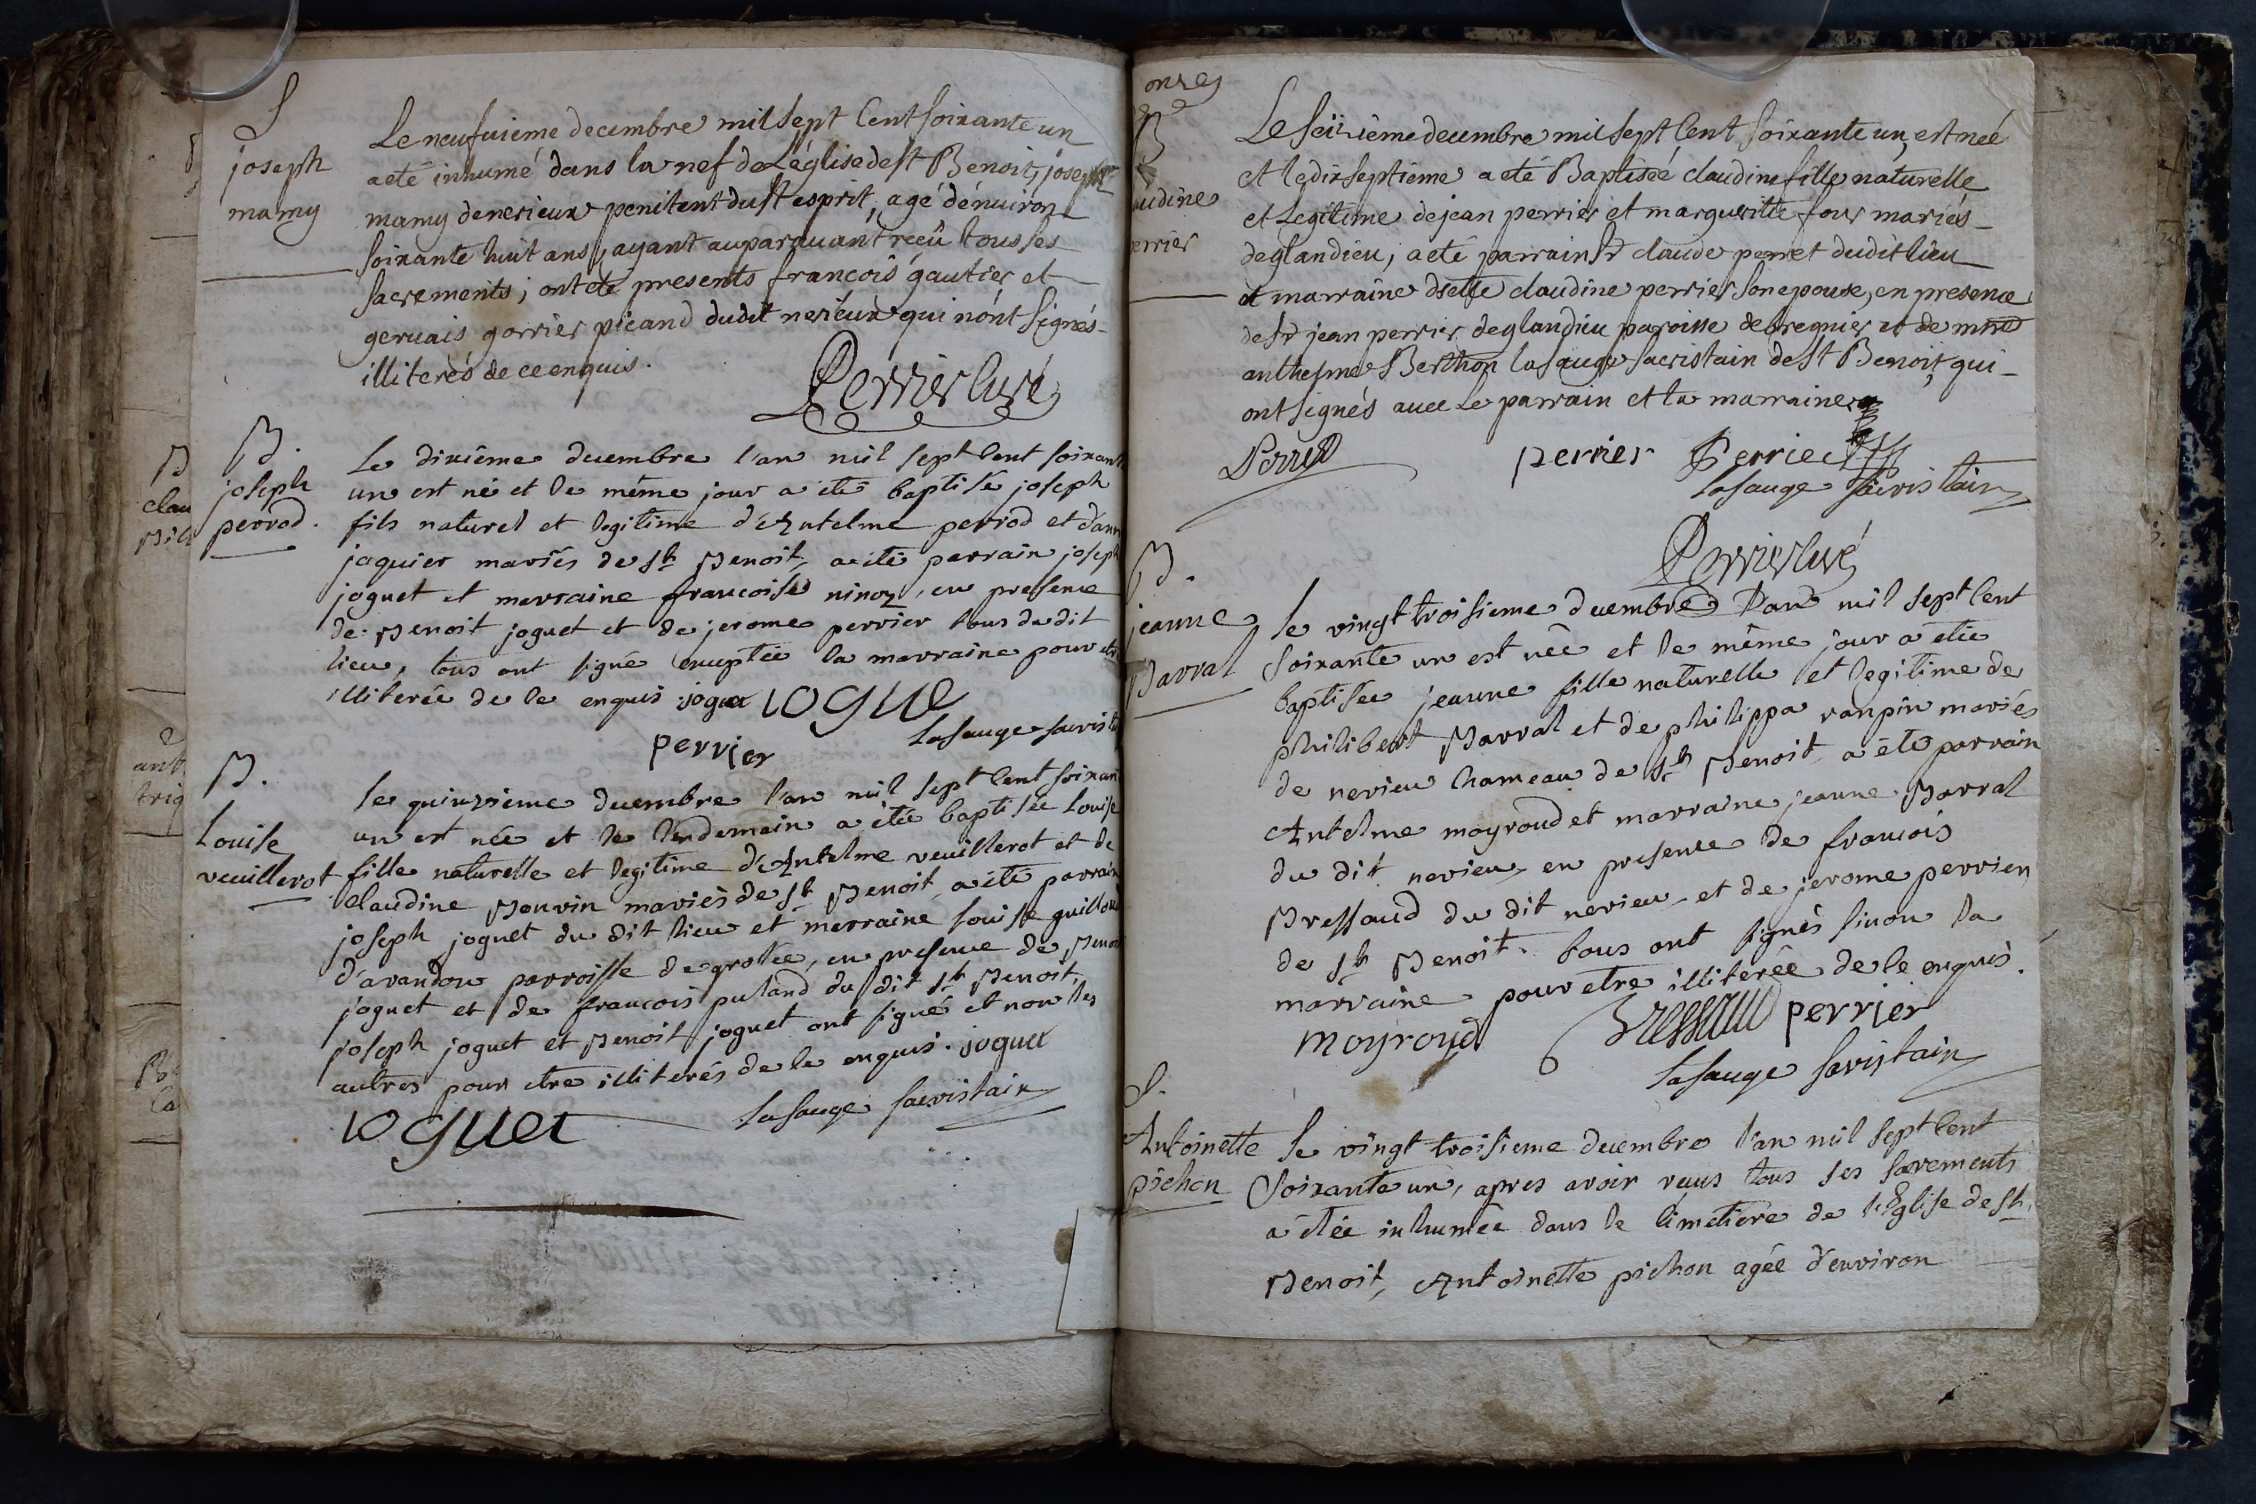 S
joseph
mamy
Le neufuieme decembre mil sept Cent soixante un
a eté inhumé dans la nef de L'église de st Benoit, joseph
mamy de nerieux penitent du st esprit, agé d'énuiron
soixante huit ans, ayant auparauant reçû tous ses
sacrements; ont eté presents francois gautier et
geruais gorrier picand dudit nerieux qui n'ont signés
illiterés de ce enquis.
Perrier Curé
B.
joseph
perrod.
Le dixiême decembre l'an mil sept Cent soixante
un est né et le même jour a été baptisé joseph
fils naturel et legitime d'Antelme perrod et d'ann
joquier mariés de st Benoit, a été parrain joseph
joguet et marraine francoise ninoz, en presence
de Benoit joguet et de jerome perrier tous du dit
lieu, tous ont signé exceptée la marraine pour etr
illiterée de ce enquis. joguet IOGUE
perrier
Lasauge sacrist
B.
Louise
veuillerot
Le quinzieme decembre l'an mil sept Cent soixan
un est née et le lendemain a étée baptisée Louise
fille naturelle et legitime d'Antelme veuillerot et de
Claudine Bouvin mariés de st Benoit, a été parrain
joseph joguet du dit lieu et marraine Louise guillou
d'avandon parroisse de grolée, en presence de Benoi
joguet et de francois puland du dit st Benoit,
joseph joguet et Benoit joguet ont signé et non les
autres pour etre illiterés de ce enquis. joguet
IOGUET
Lasauge sacristain
onzes
B
audine
errier
Le seizième decembre mil sept Cent soixante un, est neé
et le dix septième a eté Baptiseé claudine fille naturelle
et Legitime de jean perrier et marguerite four mariés
de glandieu, a eté parrain sr claude perret dudit lieu
et marraine dselle claudine perrier son epouse, en presence
de sr jean perrier de glandieu paroisse de bregnier et de mre
anthelme Berthon lasauge sacristain de st Benoit, qui
ont signés auec Le parrain et la marraine
Perret
perrier
Perrier
Lasauge sacristain
Perrier Curé
B.
jeanne
Barral
Le vingt troisieme decembre l'an mil sept Cent
soixante un est née et le même jour a étée
baptisée jeanne fille naturelle et legitime de
philibert Barral et de philippa ranpin mariés
de nerieu hameau de st Benoit, a été parrain
Antelme moyroud et marraine jeanne Barral
du dit nerieu, en presence de francois
Bressaud du dit nerieu, et de jerome perrier
de st Benoit. tous ont signés sinon la
marraine pour etre illiterée de ce enquis.
moyroud
Bressaud
perrier
Lasauge sacristain
S.
Antoinette
pichon
Le vingt troisieme decembre l'an mil sept Cent
soixante un, apres avoir reçus tous ses sacrements
a étée inhumée dans le Cimetiere de l'Eglise de st
Benoit, Antoinette pichon agée d'environ